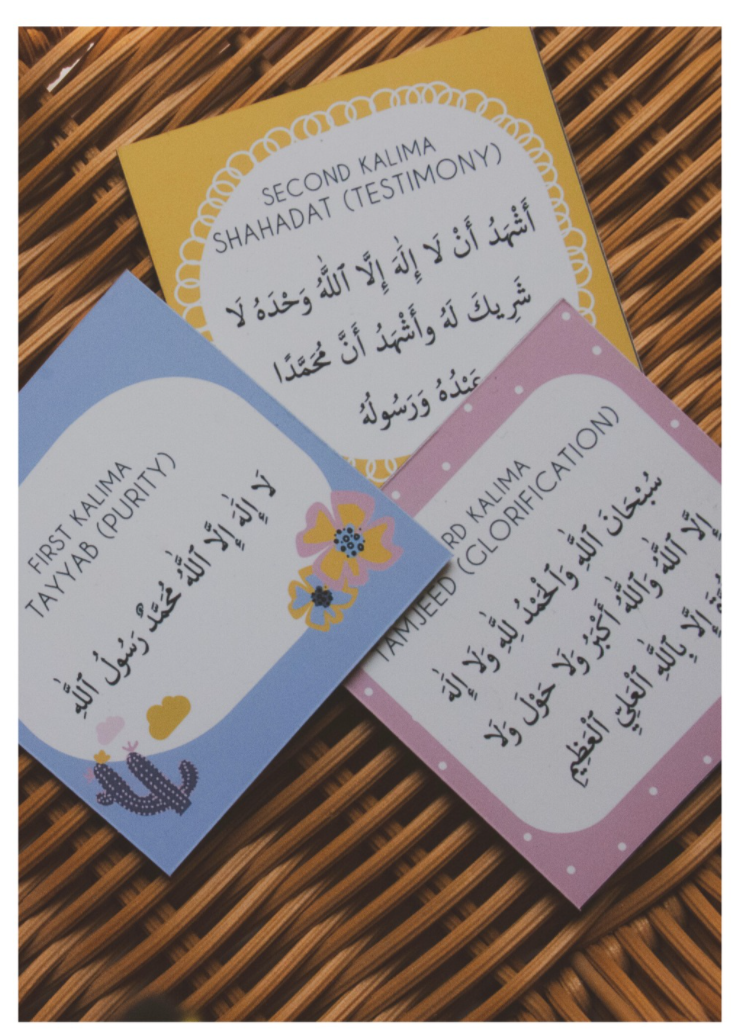 SECOND KALIMA
SHAHADAT (TESTIMONY)
أَشْهَدُ أَنْ لَا إِلٰهَ إِلَّا ٱللّٰهُ وَحْدَهُ لَا
شَرِيكَ لَهُ وأَشْهَدُ أَنَّ مُحَمَّدًا
عَبْدُهُ وَرَسُولُهُ
FIRST KALIMA
TAYYAB (PURITY)
لَا إِلٰهَ إِلَّا ٱللّٰهُ مُحَمَّدٌ رَسُولُ ٱللّٰهِ
RD KALIMA
TAMJEED (GLORIFICATION)
سُبْحَانَ ٱللّٰهِ وَٱلْحَمْدُ لِلّٰهِ وَلَا إِلٰهَ
إِلَّا ٱللّٰهُ وَٱللّٰهُ أَكْبَرُ وَلَا حَوْلَ وَلَا
إِلَّا بِٱللّٰهِ ٱلْعَلِيِّ ٱلْعَظِيمِ